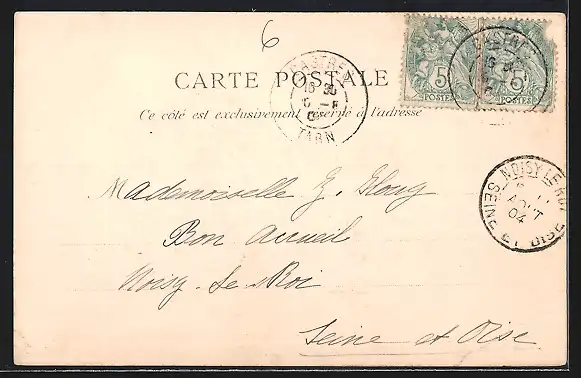 6
CARTE POSTALE
Ce côté est exclusivement réservé à l'adresse
CASTRES
TARN
5 5
POSTES POSTES
NOISY-LE-ROI
AOUT
04
SEINE ET OISE
Mademoiselle
Bon Accueil
Noisy-Le-Roi
Seine et Oise